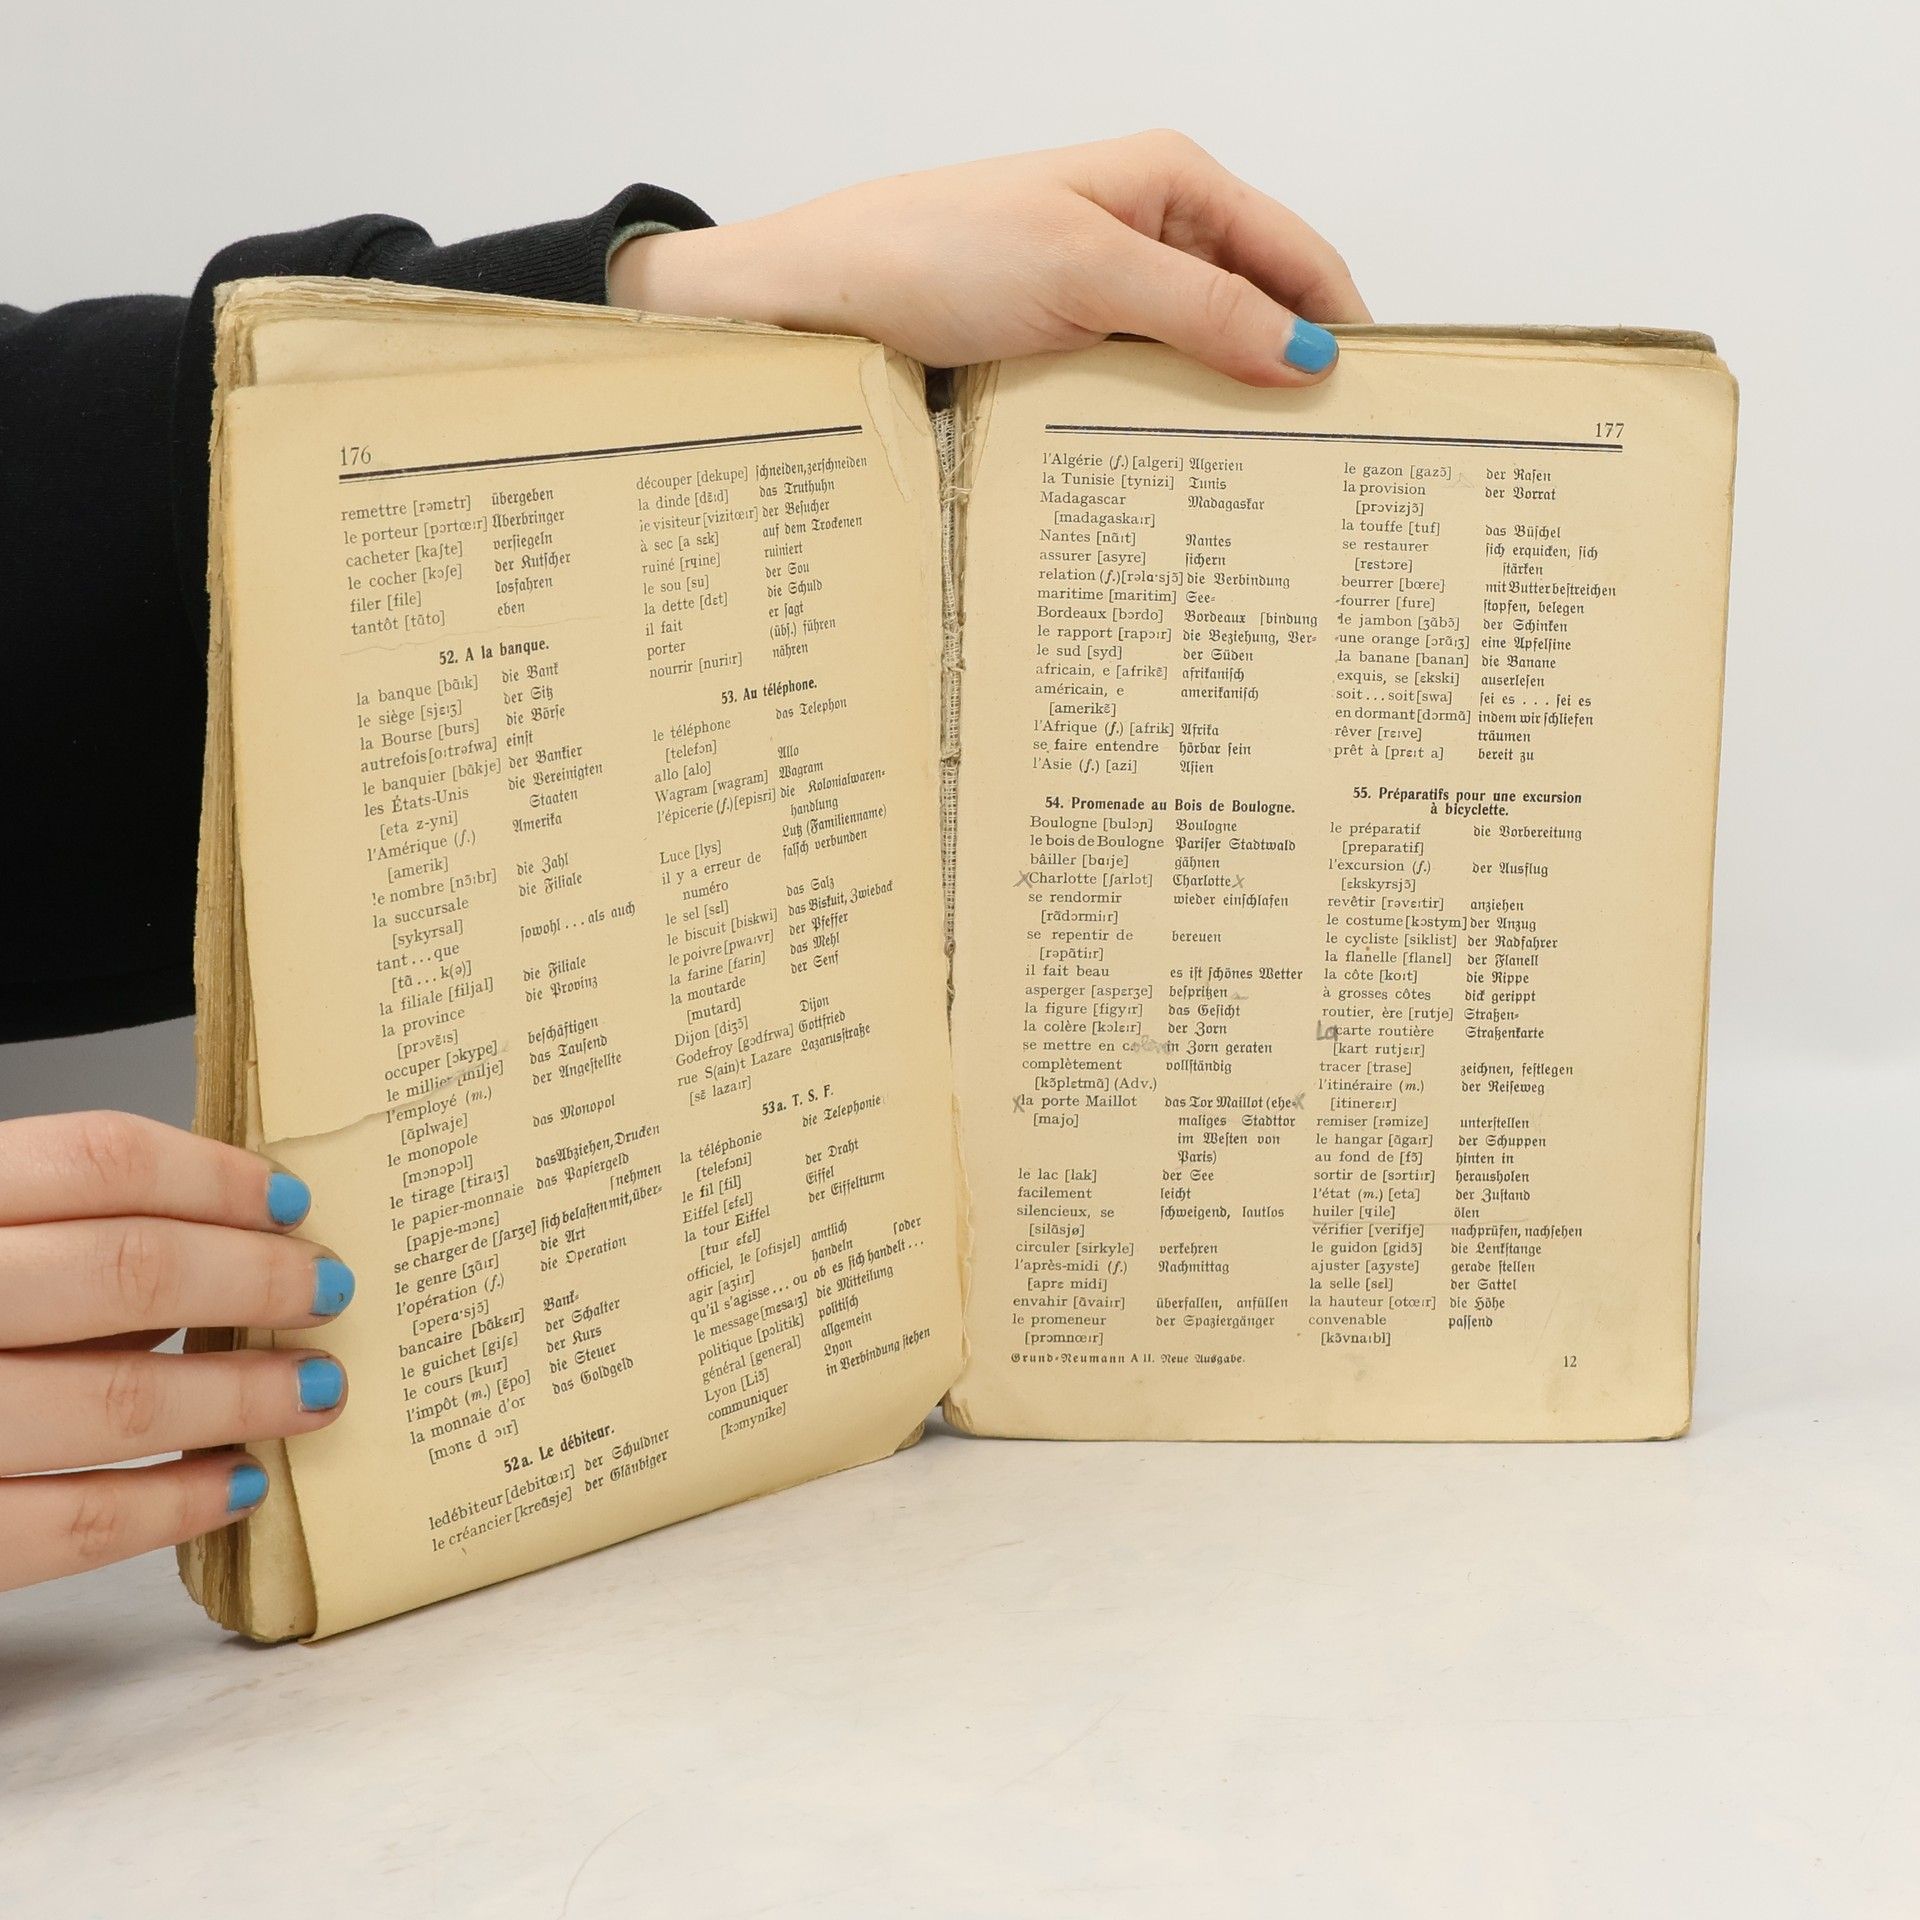 176
remettre [rəmɛtr] übergeben
le porteur [pɔrtœːr] Überbringer
cacheter [kaʃte] versiegeln
le cocher [kɔʃe] der Kutscher
filer [file] losfahren
tantôt [tɑ̃to] eben
52. A la banque.
la banque [bɑ̃ːk] die Bank
le siège [sjɛːʒ] der Sitz
la Bourse [burs] die Börse
autrefois [oːtrəfwa] einst
le banquier [bɑ̃kje] der Bankier
les États-Unis die Vereinigten
[eta z-yni] Staaten
l'Amérique (f.) Amerika
[amerik]
le nombre [nɔ̃ːbr] die Zahl
la succursale die Filiale
[sykyrsal]
tant...que sowohl...als auch
[tɑ̃...k(ə)]
la filiale [filjal] die Filiale
la province die Provinz
[prɔvɛ̃ːs]
occuper [ɔkype] beschäftigen
le millier [milje] das Tausend
l'employé (m.) der Angestellte
[ɑ̃plwaje]
le monopole das Monopol
[mɔnɔpɔl]
le tirage [tiraːʒ] das Abziehen, Drucken
le papier-monnaie das Papiergeld
[papje-mɔnɛ] [nehmen
se charger de [ʃarʒe] sich belasten mit, über-
le genre [ʒɑ̃ːr] die Art
l'opération (f.) die Operation
[ɔpera·sjɔ̃]
bancaire [bɑ̃kɛːr] Bank-
le guichet [giʃɛ] der Schalter
le cours [kuːr] der Kurs
l'impôt (m.) [ɛ̃po] die Steuer
la monnaie d'or das Goldgeld
[mɔnɛ d ɔːr]
52a. Le débiteur.
le débiteur [debitœːr] der Schuldner
le créancier [kreɑ̃sje] der Gläubiger
découper [dekupe] schneiden, zerschneiden
la dinde [dɛ̃ːd] das Truthuhn
le visiteur [vizitœːr] der Besucher
à sec [a sɛk] auf dem Trockenen
ruiné [rɥine] ruiniert
le sou [su] der Sou
la dette [dɛt] die Schuld
il fait er sagt
porter (übs.) führen
nourrir [nuriːr] nähren
53. Au téléphone.
le téléphone das Telephon
[telefɔn]
allo [alo] Allo
Wagram [wagram] Wagram
l'épicerie (f.) [episri] die Kolonialwaren-
handlung
Luce [lys] Lutz (Familienname)
il y a erreur de falsch verbunden
numéro
le sel [sɛl] das Salz
le biscuit [biskwi] das Biskuit, Zwieback
le poivre [pwaːvr] der Pfeffer
la farine [farin] das Mehl
la moutarde der Senf
[mutard]
Dijon [diʒɔ̃] Dijon
Godefroy [gɔdfrwa] Gottfried
rue S(ain)t Lazare Lazarusstraße
[sɛ̃ lazaːr]
53a. T. S. F.
la téléphonie die Telephonie
[telefɔni]
le fil [fil] der Draht
Eiffel [ɛfɛl] Eiffel
la tour Eiffel der Eiffelturm
[tuːr ɛfɛl]
officiel, le [ɔfisjɛl] amtlich
agir [aʒiːr] handeln [oder
qu'il s'agisse...ou ob es sich handelt...
le message [mɛsaːʒ] die Mitteilung
politique [pɔlitik] politisch
général [general] allgemein
Lyon [Liɔ̃] Lyon
communiquer in Verbindung stehen
[kɔmynike]
177
l'Algérie (f.) [algeri] Algerien
la Tunisie [tynizi] Tunis
Madagascar Madagaskar
[madagaskaːr]
Nantes [nɑ̃ːt] Nantes
assurer [asyre] sichern
relation (f.) [rəla·sjɔ̃] die Verbindung
maritime [maritim] See-
Bordeaux [bɔrdo] Bordeaux [bindung
le rapport [rapɔːr] die Beziehung, Ver-
le sud [syd] der Süden
africain, e [afrikɛ̃] afrikanisch
américain, e amerikanisch
[amerikɛ̃]
l'Afrique (f.) [afrik] Afrika
se faire entendre hörbar sein
l'Asie (f.) [azi] Asien
54. Promenade au Bois de Boulogne.
Boulogne [bulɔɲ] Boulogne
le bois de Boulogne Pariser Stadtwald
bâiller [baːje] gähnen
x Charlotte [ʃarlɔt] Charlotte x
se rendormir wieder einschlafen
[rɑ̃dɔrmiːr]
se repentir de bereuen
[rəpɑ̃tiːr]
il fait beau es ist schönes Wetter
asperger [aspɛrʒe] bespritzen
la figure [figyːr] das Gesicht
la colère [kɔlɛːr] der Zorn
se mettre en colère in Zorn geraten
complètement vollständig
[kɔ̃plɛtmɑ̃] (Adv.)
x la porte Maillot das Tor Maillot (ehe- x
[majo] maliges Stadttor
im Westen von
Paris)
le lac [lak] der See
facilement leicht
silencieux, se schweigend, lautlos
[silɑ̃sjø]
circuler [sirkyle] verkehren
l'après-midi (f.) Nachmittag
[aprɛ midi]
envahir [ɑ̃vaiːr] überfallen, anfüllen
le promeneur der Spaziergänger
[prɔmnœːr]
le gazon [gazɔ̃] der Rasen
la provision der Vorrat
[prɔvizjɔ̃]
la touffe [tuf] das Büschel
se restaurer sich erquicken, sich
[rɛstɔre] stärken
beurrer [bœre] mit Butter bestreichen
fourrer [fure] stopfen, belegen
le jambon [ʒɑ̃bɔ̃] der Schinken
une orange [ɔrɑ̃ːʒ] eine Apfelsine
la banane [banan] die Banane
exquis, se [ɛkski] auserlesen
soit...soit [swa] sei es . . . sei es
en dormant [dɔrmɑ̃] indem wir schliefen
rêver [rɛːve] träumen
prêt à [prɛːt a] bereit zu
55. Préparatifs pour une excursion
à bicyclette.
le préparatif die Vorbereitung
[preparatif]
l'excursion (f.) der Ausflug
[ɛkskyrsjɔ̃]
revêtir [rəvɛːtir] anziehen
le costume [kɔstym] der Anzug
le cycliste [siklist] der Radfahrer
la flanelle [flanɛl] der Flanell
la côte [koːt] die Rippe
à grosses côtes dick gerippt
routier, ère [rutje] Straßen-
La carte routière Straßenkarte
[kart rutjɛːr]
tracer [trase] zeichnen, festlegen
l'itinéraire (m.) der Reiseweg
[itinerɛːr]
remiser [rəmize] unterstellen
le hangar [ɑ̃gaːr] der Schuppen
au fond de [fɔ̃] hinten in
sortir de [sɔrtiːr] herausholen
l'état (m.) [eta] der Zustand
huiler [ɥile] ölen
vérifier [verifje] nachprüfen, nachsehen
le guidon [gidɔ̃] die Lenkstange
ajuster [aʒyste] gerade stellen
la selle [sɛl] der Sattel
la hauteur [otœːr] die Höhe
convenable passend
[kɔ̃vnaːbl]
Grund-Neumann A II. Neue Ausgabe. 12